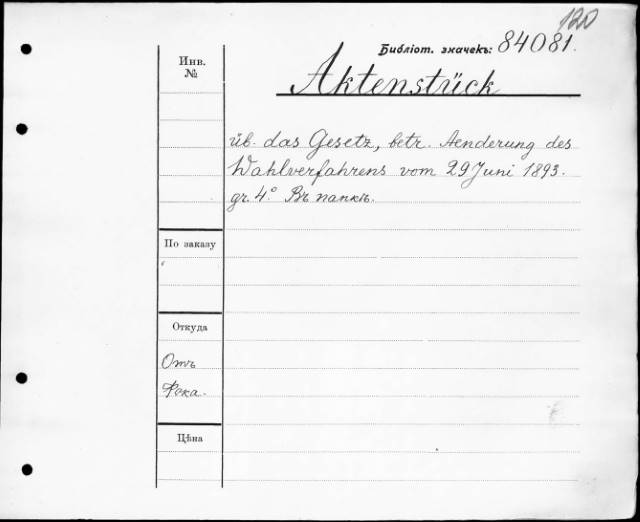 120
Библіот. значекъ: 84081.
Инв.
№
Aktenstück
üb. das Gesetz, betr. Aenderung des
Wahlverfahrens vom 29 Juni 1893.
gr. 4.° Въ папкѣ.
По заказу
Откуда
Отъ
Фека.
Цѣна